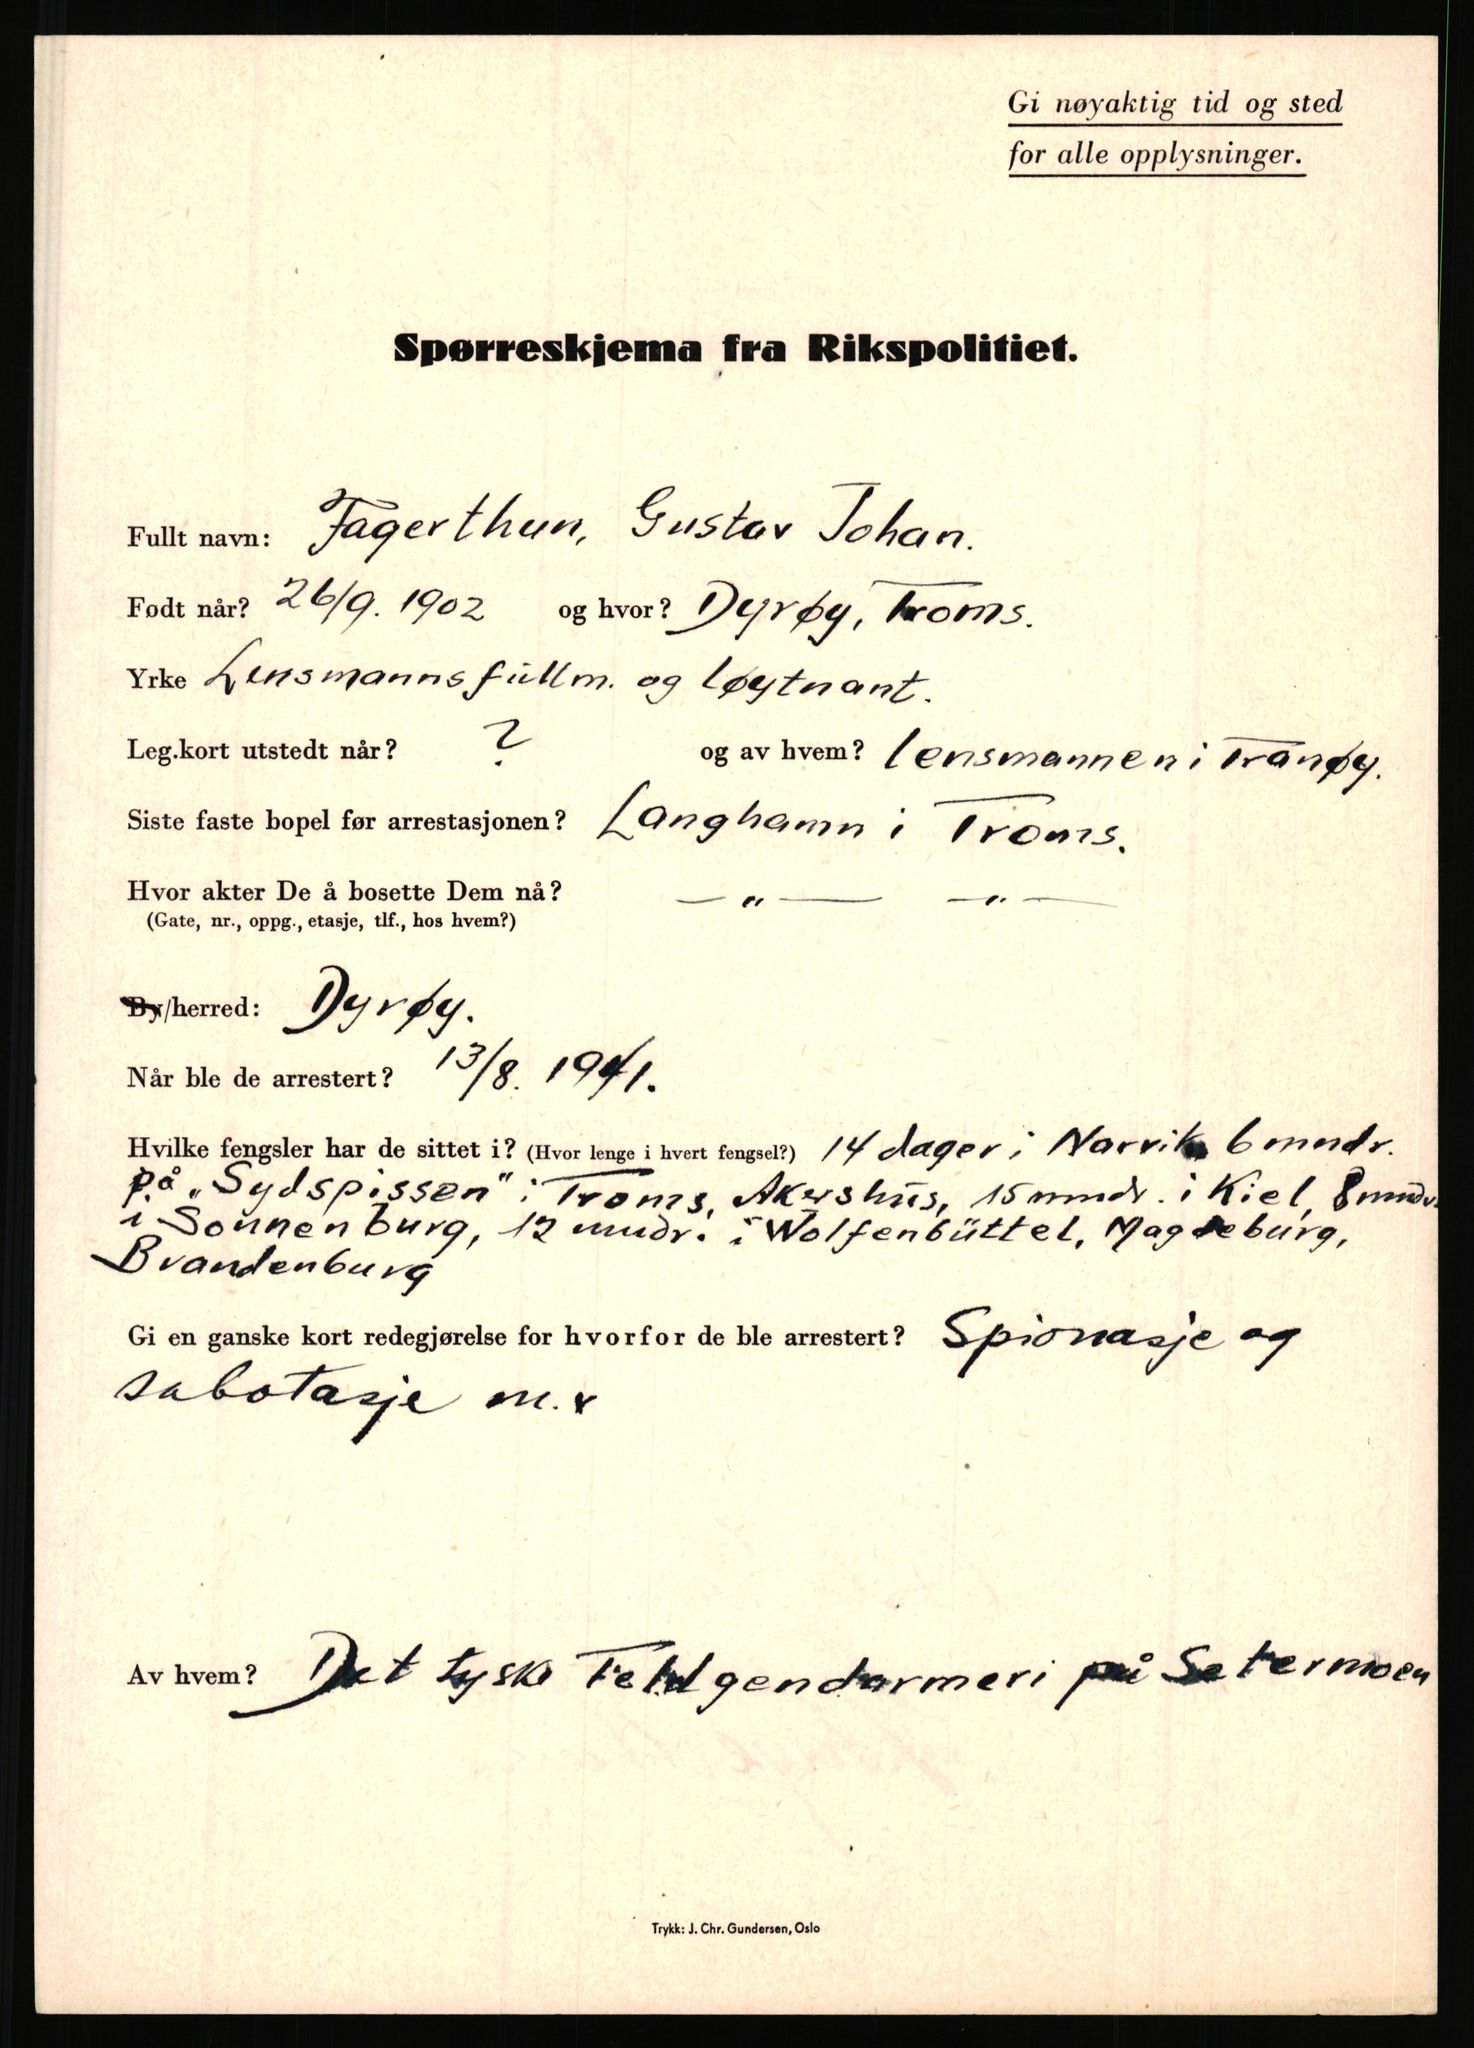 Gi nøyaktig tid og sted
for alle opplysninger.
Spørreskjema fra Rikspolitiet.
Fullt navn: Fagerthun, Gustav Johan.
Født når? 26/9. 1902 og hvor? Dyrøy, Troms.
Yrke Lensmannsfullm. og løytnant.
Leg.kort utstedt når? ? og av hvem? lensmannen i Tranøy.
Siste faste bopel før arrestasjonen? Langhamn i Troms.
Hvor akter De å bosette Dem nå? — „ — — „ —
(Gate, nr., oppg., etasje, tlf., hos hvem?)
By/herred: Dyrøy.
Når ble de arrestert? 13/8. 1941.
Hvilke fengsler har de sittet i? (Hvor lenge i hvert fengsel?) 14 dager i Narvik 6 mndr.
på „Sydspissen" i Troms, Akershus, 15 mndr. i Kiel, 8 mndr.
i Sonnenburg, 12 mndr. i Wolfenbüttel, Magdeburg,
Brandenburg
Gi en ganske kort redegjørelse for hvorfor de ble arrestert? Spionasje og
sabotasje m.v
Av hvem? Det tyske Feldgendarmeri på Setermoen
Trykk: J. Chr. Gundersen, Oslo